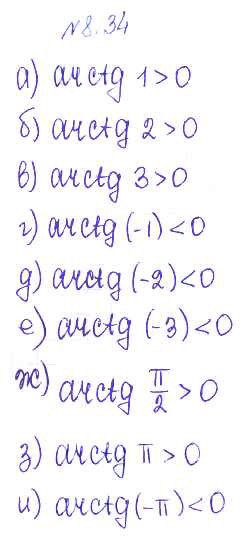 №8.34
а) arctg 1 > 0
б) arctg 2 > 0
в) arctg 3 > 0
г) arctg (-1) < 0
д) arctg (-2) < 0
е) arctg (-3) < 0
ж) arctg π/2 > 0
з) arctg π > 0
и) arctg (-π) < 0